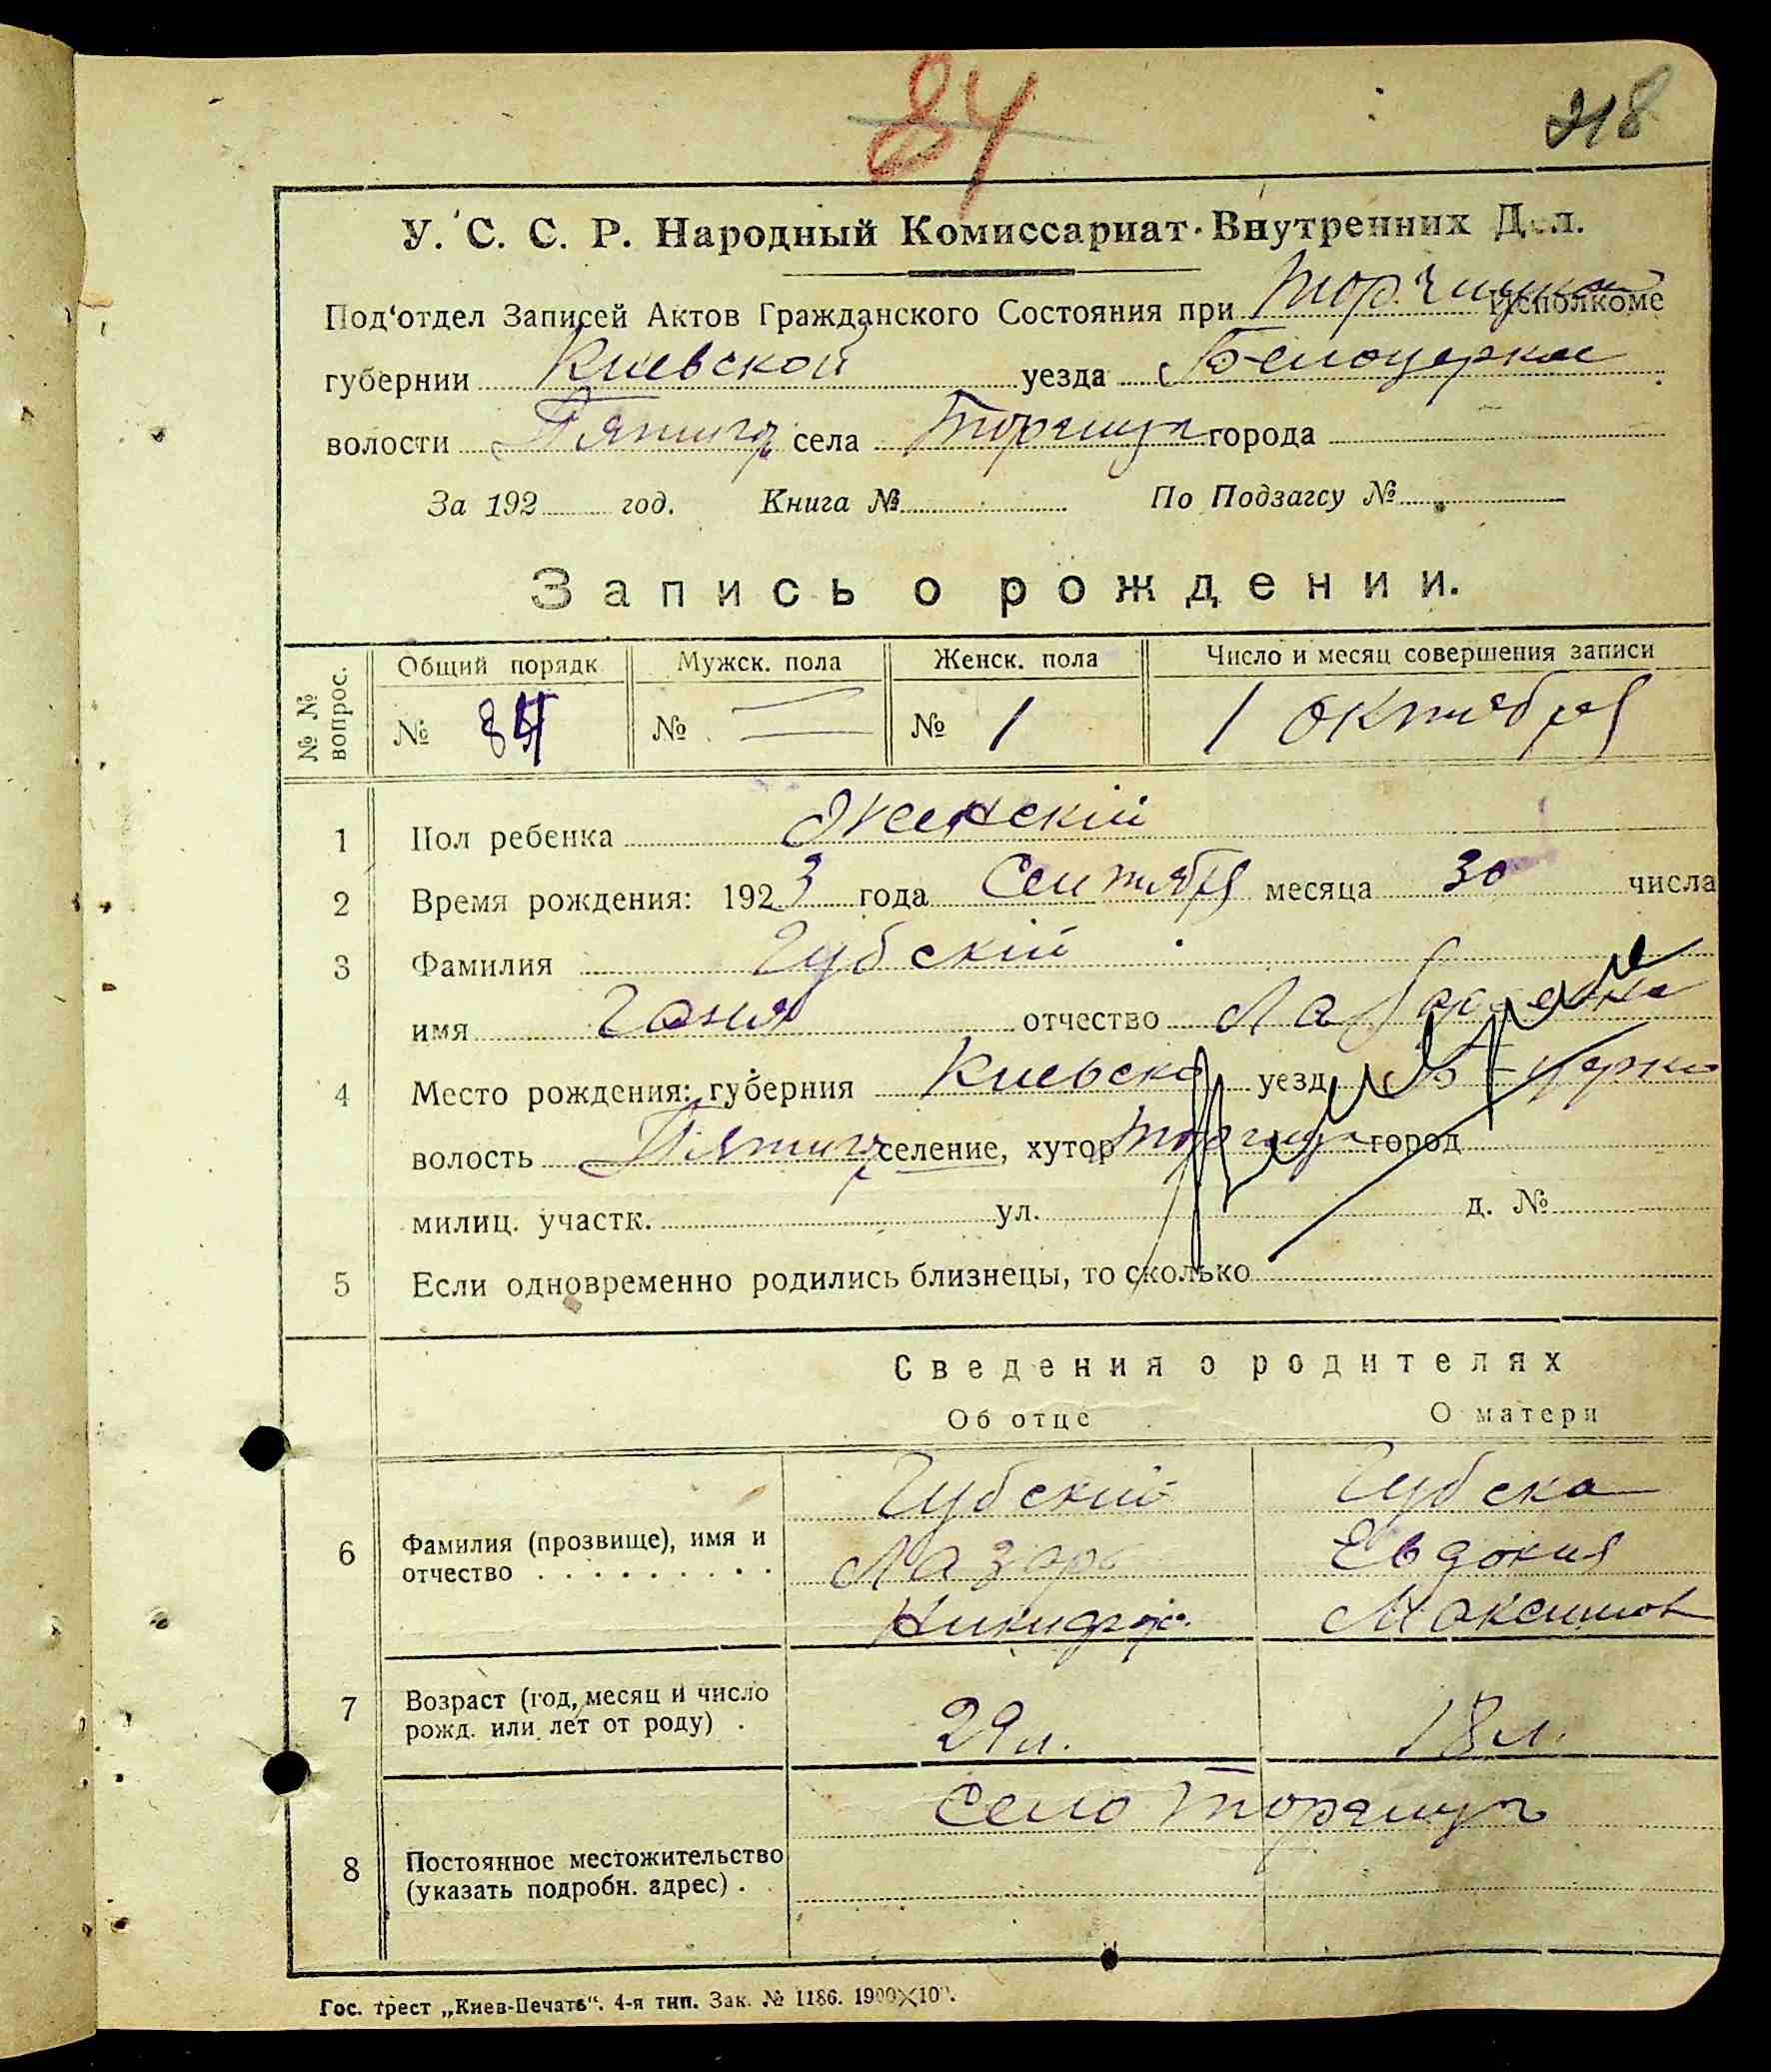 84
218
У. С. С. Р. Народный Комиссариат Внутренних Дел.
Под'отдел Записей Актов Гражданского Состояния при Исполкоме
губернии Киевской уезда Белоцеркос
волости Пятигор села Торчиця города
За 192 год. Книга № По Подзагсу №
Запись о рождении.
№ № вопрос. Общий порядк. Мужск. пола Женск. пола Число и месяц совершения записи
№ 84 № — № 1 1 октября
1 Пол ребенка Женскій
2 Время рождения: 1923 года Сентября месяца 30 числа
3 Фамилия Губскій
имя Ганя отчество
4 Место рождения: губерния Киевска уезд Б-церко
волость Пятигор селение, хутор Торчиця город
милиц. участк. ул. д. №
5 Если одновременно родились близнецы, то сколько
Сведения о родителях
Об отце О матери
Губский Губска
6 Фамилия (прозвище), имя и отчество Лазарь Евдокия
Никифор. Максимов
7 Возраст (год, месяц и число рожд. или лет от роду) 29 л. 18 л.
Село Торчиця
8 Постоянное местожительство (указать подробн. адрес)
Гос. трест „Киев-Печать". 4-я тип. Зак. № 1186. 1900×100.